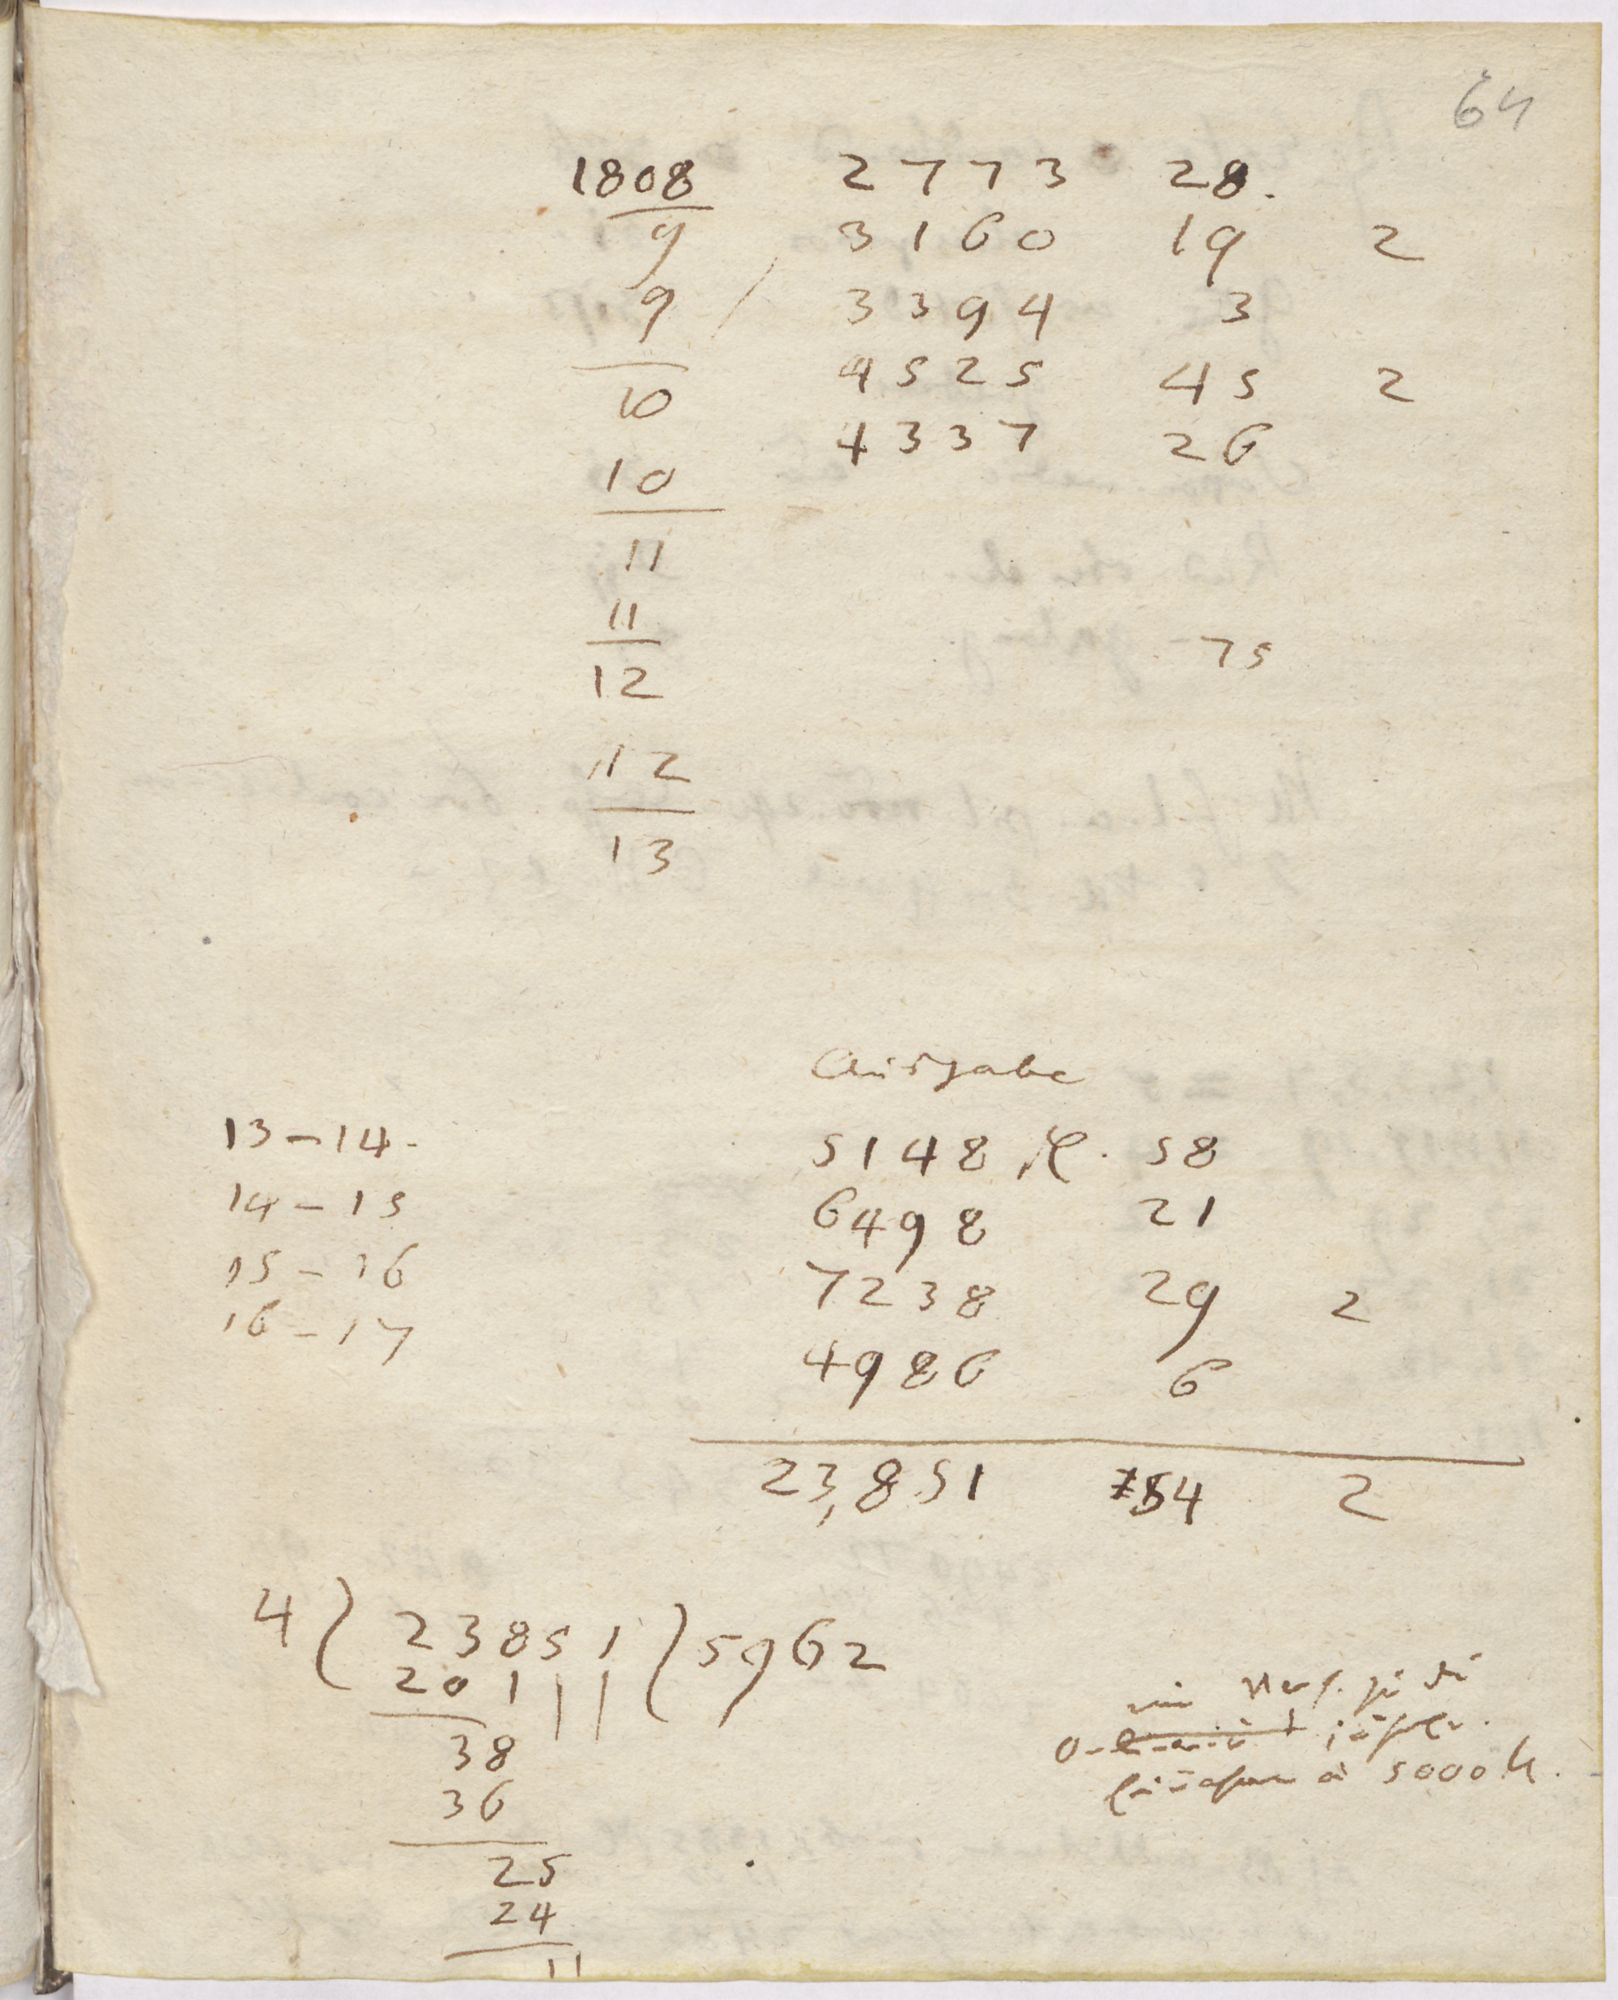 64
1808 2773 28.
9 3160 19 2
9 / 3394 3
10 4525 45 2
10 4337 26
11
11
12 75
12
13
Ausgabe
13-14. 5148 58
14-15 6498 21
15-16 7238 29 2
16-17 4986 6
23,851 54 2
4 ( 23851 ( 5962
201
38
36
à 5000
25
24
11